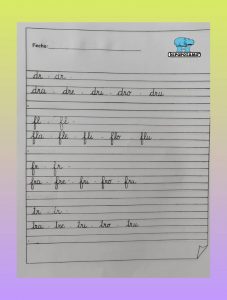 Fecha:
HIPOPOCAMPO
dr - dr
dra - dre - dri - dro - dru
fl - fl -
fla - fle - fli - flo - flu
fr - fr -
fra - fre - fri - fro - fru
tr - tr -
tra - tre - tri - tro - tru